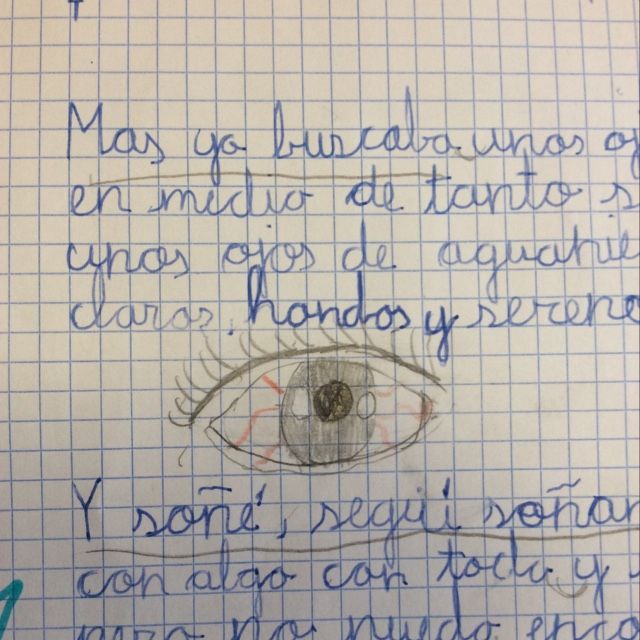 Mas yo buscaba unos oj
en medio de tanto s
unos ojos de aguahie
claros, hondos y sereno
Y soñé, seguí soñan
con algo con todo y
pero no puedo